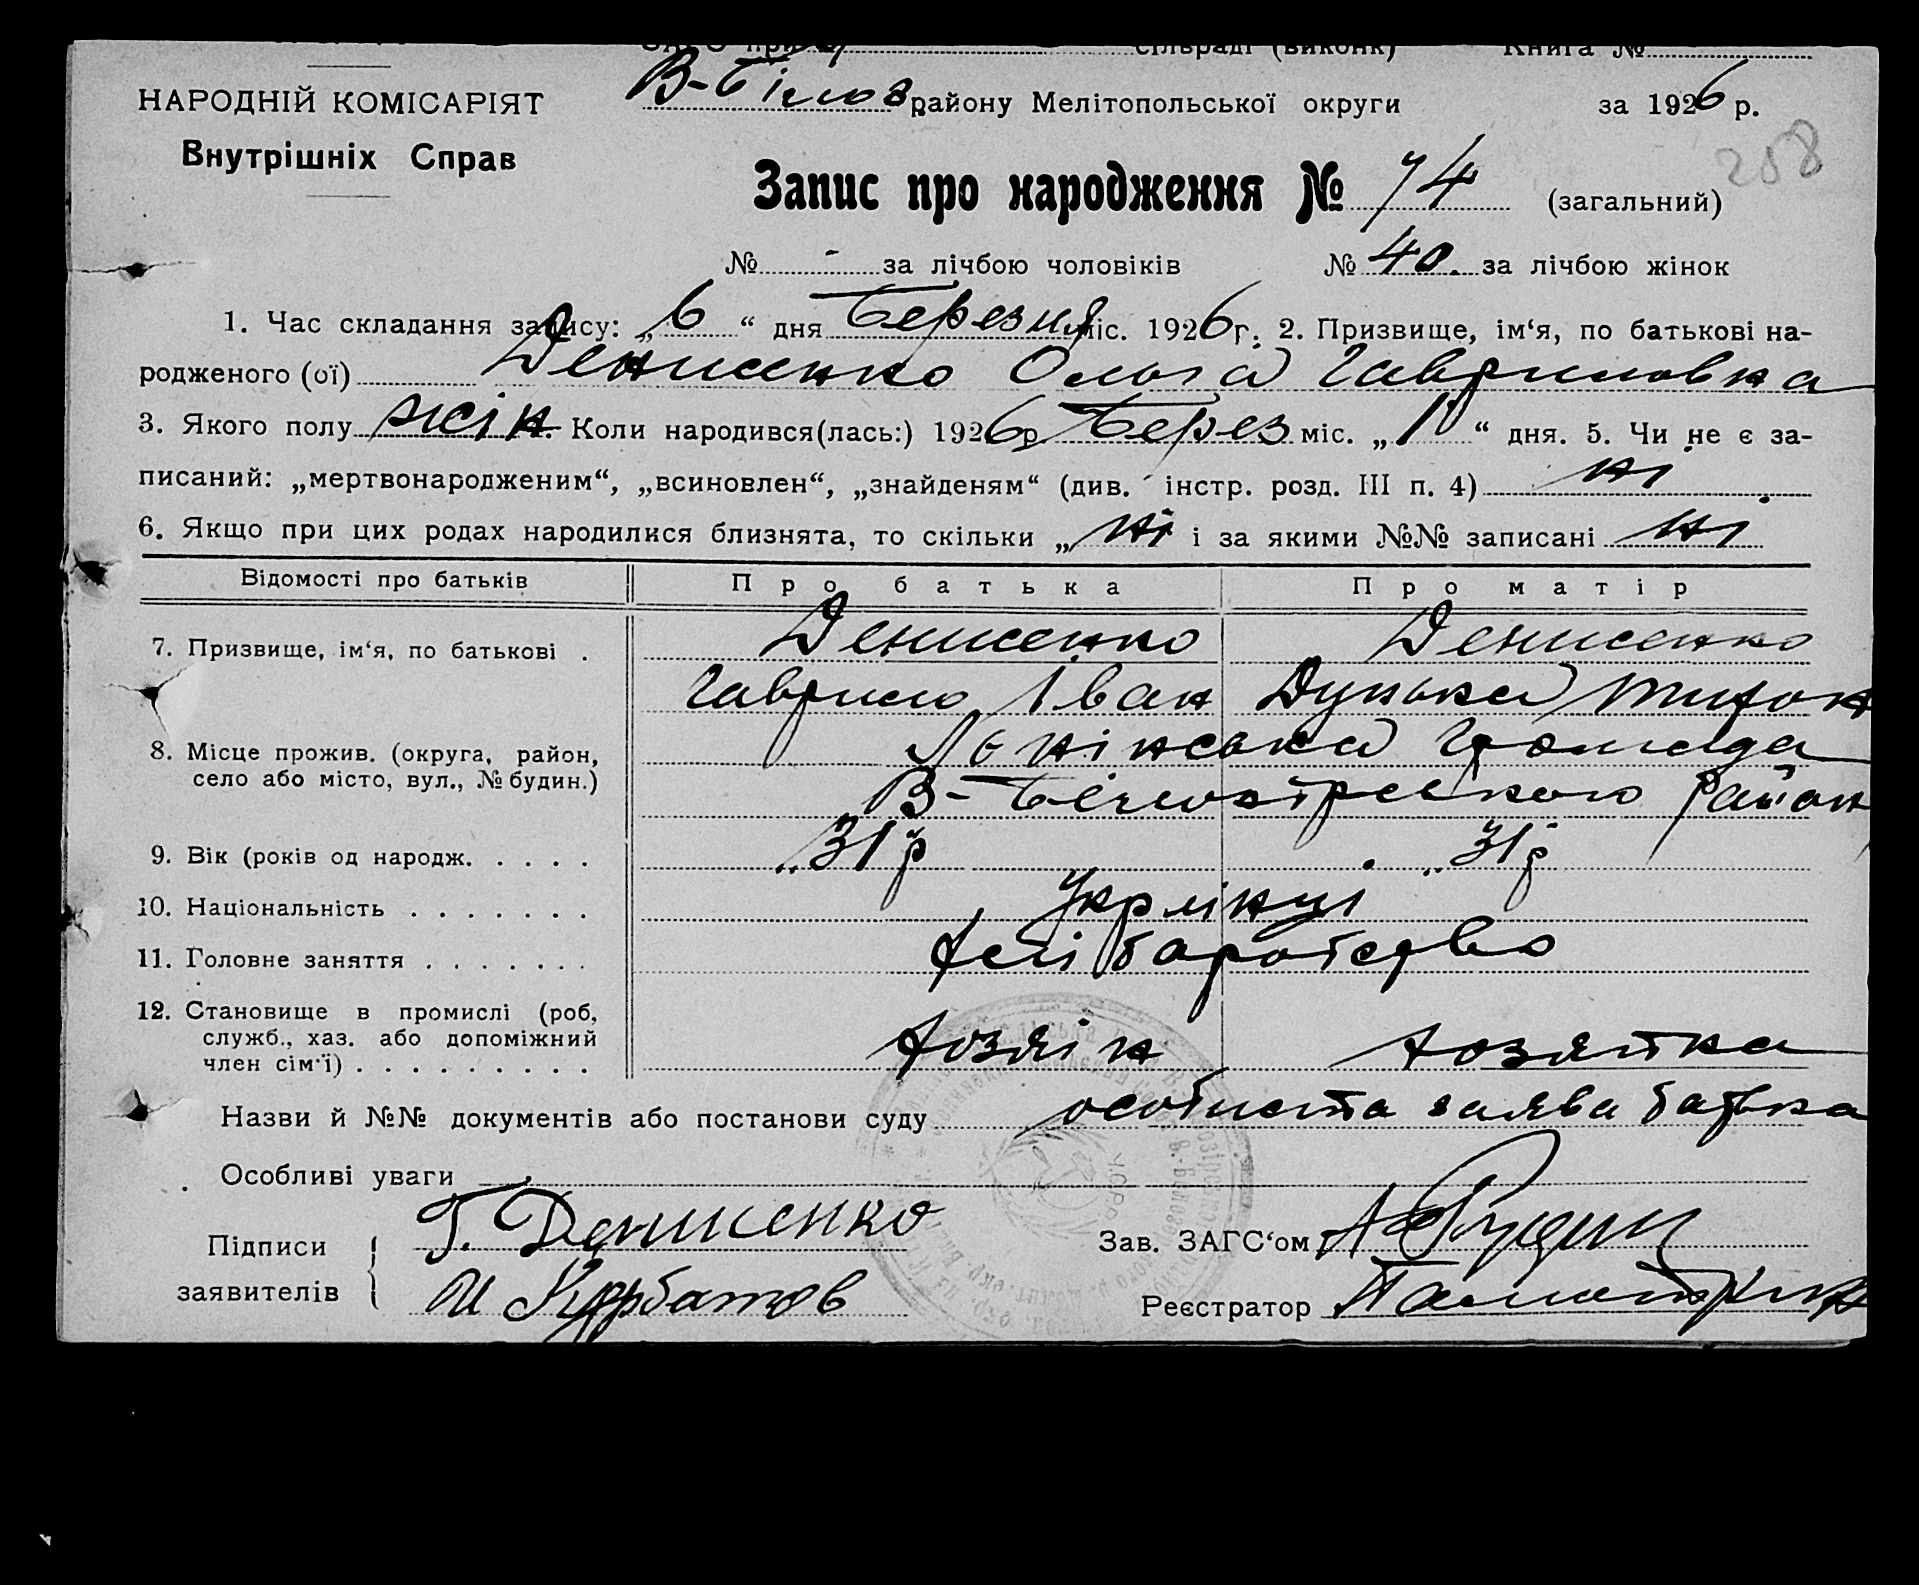 сільраді (виконк) Книга №
НАРОДНІЙ КОМІСАРІЯТ
Внутрішніх Справ
В-Білоз району Мелітопольської округи за 1926 р.
258
Запис про народження № 74 (загальний)
№ - за лічбою чоловіків № 40. за лічбою жінок
1. Час складання запису: „6“ дня Березня міс. 1926 г. 2. Призвище, ім‘я, по батькові на-
родженого (ої) Денисенко Ольга Гавриловка
3. Якого полу жін. Коли народився(лась:) 1926 р. Берез міс. „1“ дня. 5. Чи не є за-
писаний: „мертвонародженим“, „всиновлен“, „знайденям“ (див. інстр. розд. III п. 4) ні.
6. Якщо при цих родах народилися близнята, то скільки „ні і за якими №№ записані ні
Відомості про батьків Про батька Про матір
7. Призвище, ім‘я, по батькові . Денисенко Денисенко
Гаврило Іван Дунька Тихон
8. Місце прожив. (округа, район,
село або місто, вул., № будин.)
Ленінська Громада
В-Білозірського район
9. Вік (років од народж. . . . . 31 р 31 р
10. Національність . . . . . . . Укрлінці
11. Головне заняття . . . . . . . Хлібаробство
12. Становище в промислі (роб,
служб., хаз. або допоміжний
член сім‘ї) . . . . . . . . . Хозяін Хозяйка
Назви й №№ документів або постанови суду особиста заява батька
Особливі уваги
Підписи
заявителів
Г. Денисенко
И Курбатов
Зав. ЗАГС‘ом
Реєстратор